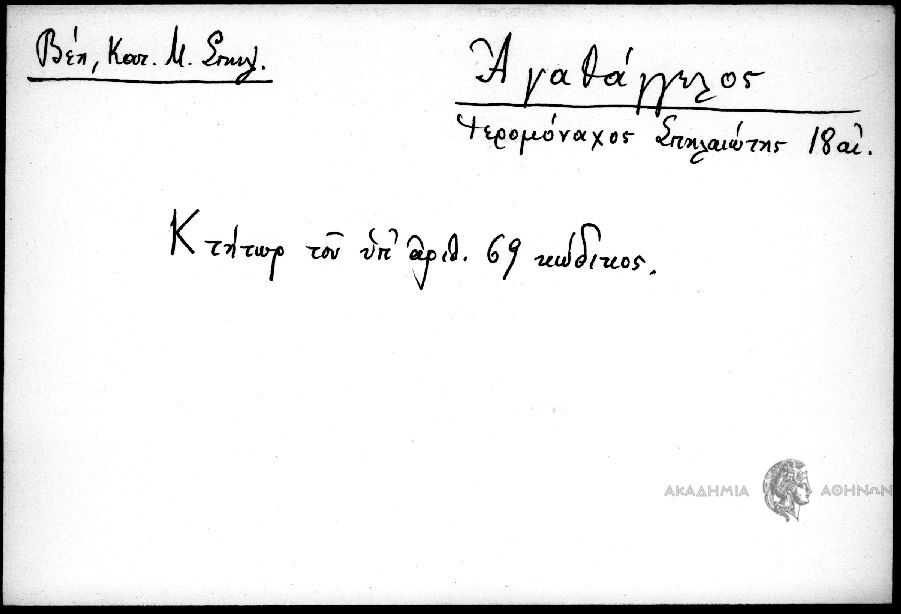 Βέη, Κατ. Μ. Σπηλ.
Ἀγαθάγγελος
Ἱερομόναχος Σπηλαιώτης 18 αἰ.
Κτήτωρ τοῦ ὑπ' ἀριθ. 69 κώδικος.
ΑΚΑΔΗΜΙΑ ΑΘΗΝΩΝ